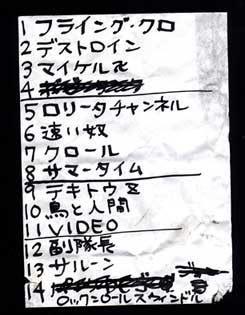 1 フライング・クロ
2 デストロイン
3 マイケル
4
5 ロリータチャンネル
6 速い奴
7 クロール
8 サマータイム
9 テキトウ
10 鳥と人間
11 VIDEO
12 副隊長
13 サルーン
14
ロックンロールスウィンドル